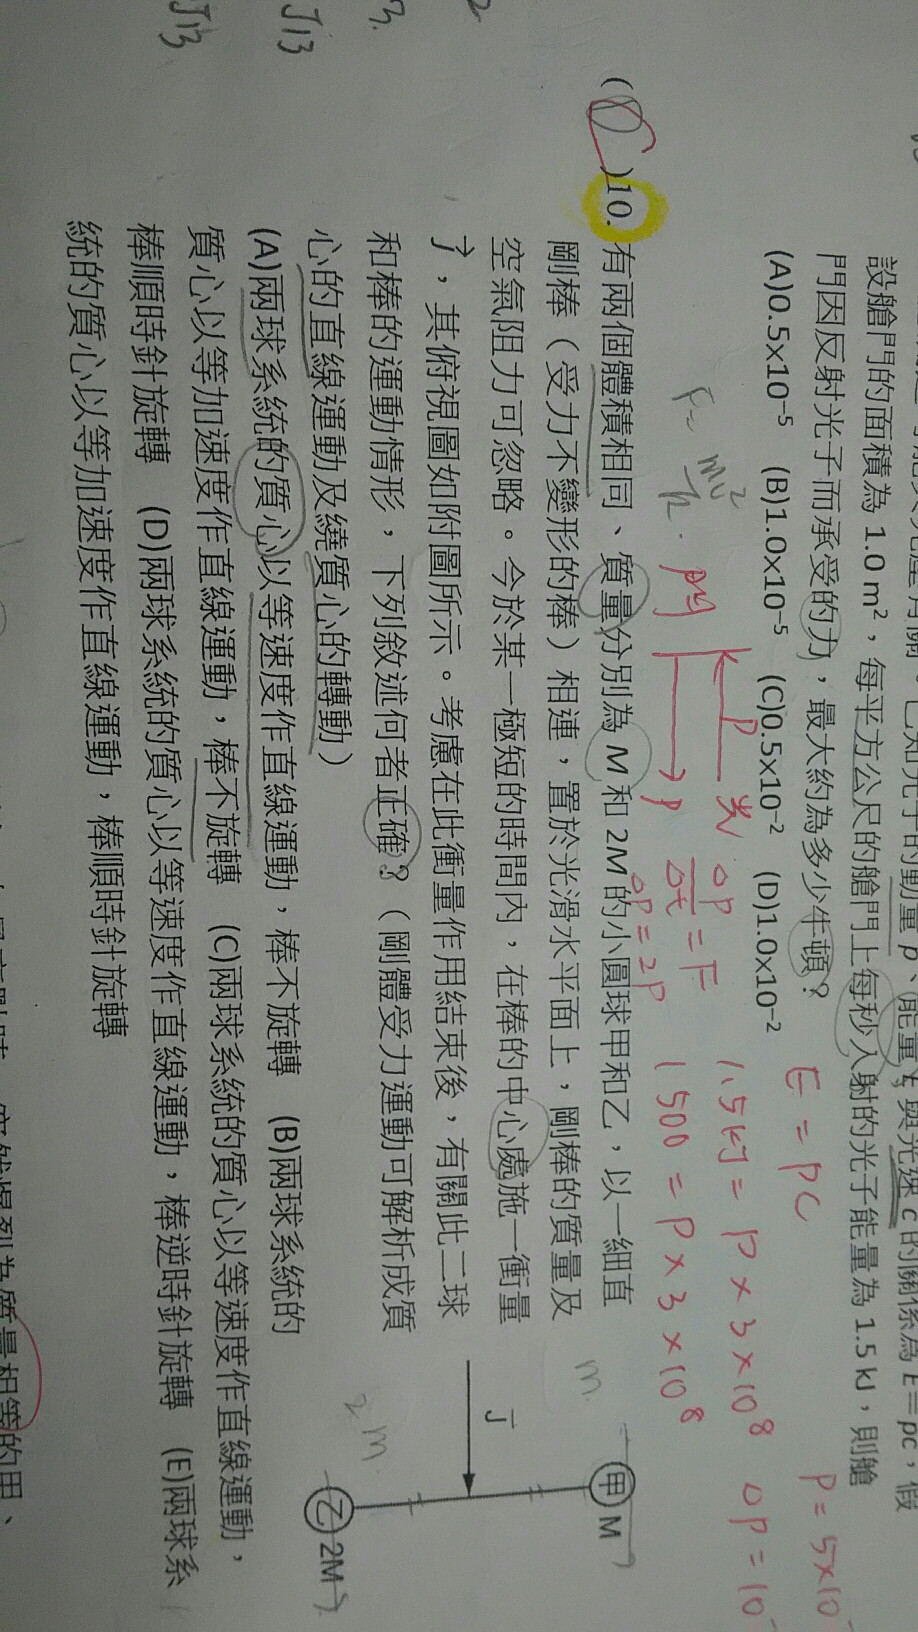 設艙門的面積為 1.0 m²，每平方公尺的艙門上每秒入射的光子能量為 1.5 kJ，則艙
門因反射光子而承受的力，最大約為多少牛頓？
(A)0.5×10⁻⁵ (B)1.0×10⁻⁵ (C)0.5×10⁻² (D)1.0×10⁻²
E = pc
1.5kJ = P × 3×10⁸
1500 = P × 3 × 10⁸
光
P
Δp/Δt = F
P
Δp = 2P
F = mv²/r
( )10. 有兩個體積相同、質量分別為 M 和 2M 的小圓球甲和乙，以一細直
剛棒（受力不變形的棒）相連，置於光滑水平面上，剛棒的質量及
空氣阻力可忽略。今於某一極短的時間內，在棒的中心處施一衝量
J⃗，其俯視圖如附圖所示。考慮在此衝量作用結束後，有關此二球
和棒的運動情形，下列敘述何者正確？（剛體受力運動可解析成質
心的直線運動及繞質心的轉動）
(A)兩球系統的質心以等速度作直線運動，棒不旋轉 (B)兩球系統的
質心以等加速度作直線運動，棒不旋轉 (C)兩球系統的質心以等速度作直線運動，
棒順時針旋轉 (D)兩球系統的質心以等速度作直線運動，棒逆時針旋轉 (E)兩球系
統的質心以等加速度作直線運動，棒順時針旋轉
m
甲 M
J⃗
2m
乙 2M